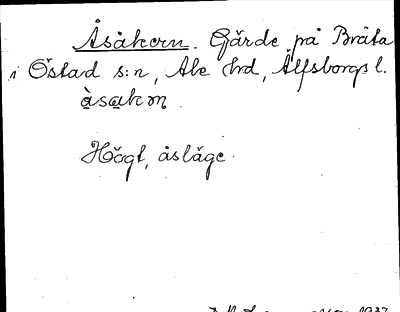 Åsåkern. Gärde på Bråta
i Östad s:n, Ale hrd, Älfsborgs l.
åsakɷn.
Högt, åsläge.
1937